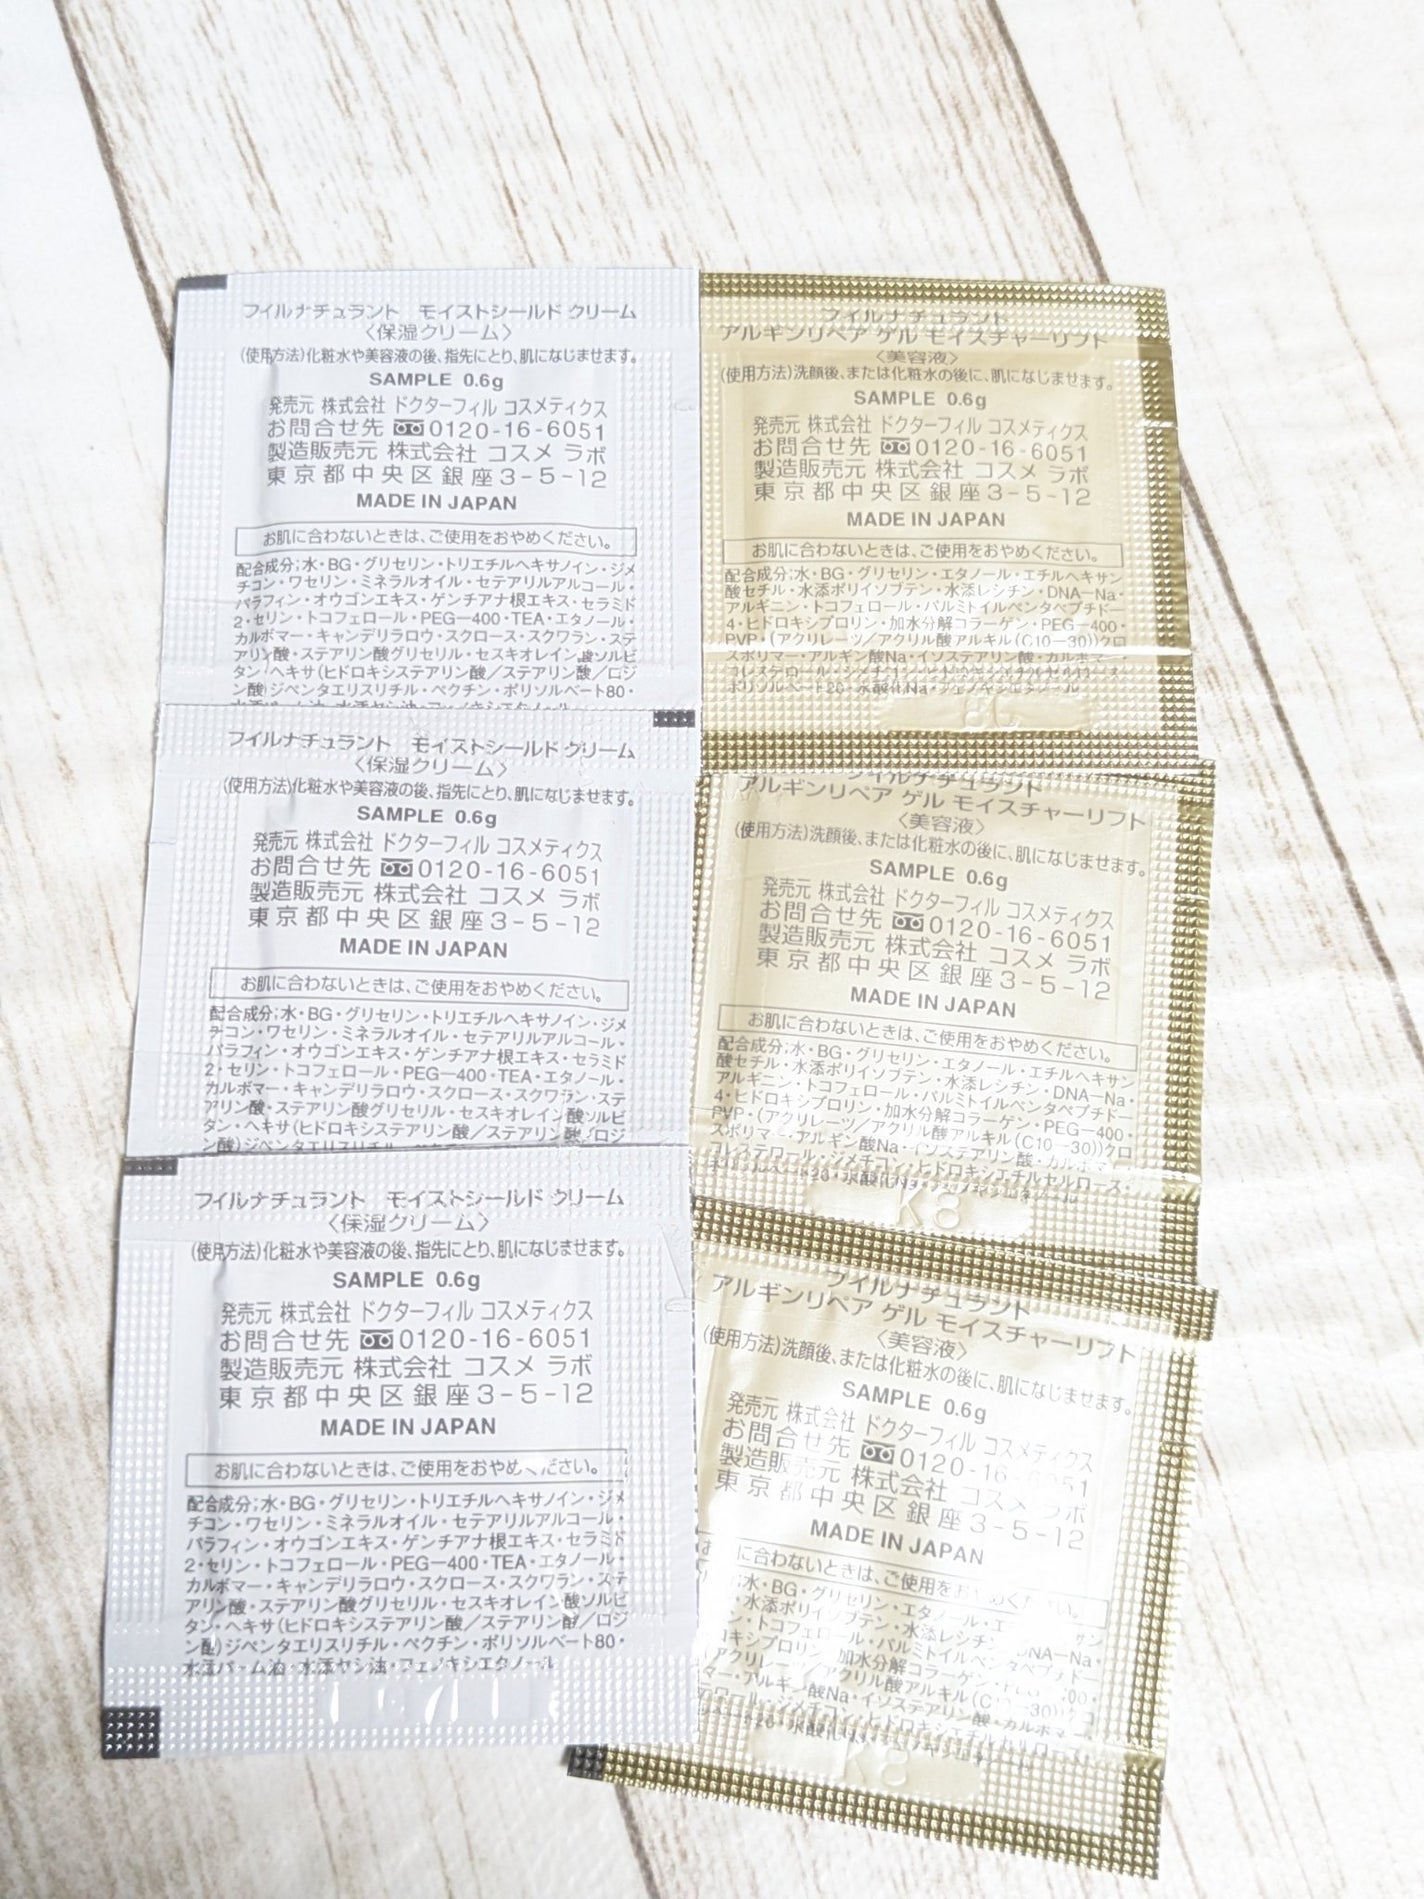 フイルナチュラント モイストシールド クリーム
〈保湿クリーム〉
(使用方法)化粧水や美容液の後、指先にとり、肌になじませます。
SAMPLE 0.6g
発売元 株式会社 ドクターフィル コスメティクス
お問合せ先 0120-16-6051
製造販売元 株式会社 コスメ ラボ
東京都中央区銀座3-5-12
MADE IN JAPAN
お肌に合わないときは、ご使用をおやめください。
配合成分;水・BG・グリセリン・トリエチルヘキサノイン・ジメ
チコン・ワセリン・ミネラルオイル・セテアリルアルコール・
パラフィン・オウゴンエキス・ゲンチアナ根エキス・セラミド
2・セリン・トコフェロール・PEG—400・TEA・エタノール・
カルボマー・キャンデリラロウ・スクロース・スクワラン・ステ
アリン酸・ステアリン酸グリセリル・セスキオレイン酸ソルビ
タン・ヘキサ(ヒドロキシステアリン酸/ステアリン酸/ロジ
ン酸)ジペンタエリスリチル・ペクチン・ポリソルベート80・
フイルナチュラント モイストシールド クリーム
〈保湿クリーム〉
(使用方法)化粧水や美容液の後、指先にとり、肌になじませます。
SAMPLE 0.6g
発売元 株式会社 ドクターフィル コスメティクス
お問合せ先 0120-16-6051
製造販売元 株式会社 コスメ ラボ
東京都中央区銀座3-5-12
MADE IN JAPAN
お肌に合わないときは、ご使用をおやめください。
配合成分;水・BG・グリセリン・トリエチルヘキサノイン・ジメ
チコン・ワセリン・ミネラルオイル・セテアリルアルコール・
パラフィン・オウゴンエキス・ゲンチアナ根エキス・セラミド
2・セリン・トコフェロール・PEG—400・TEA・エタノール・
カルボマー・キャンデリラロウ・スクロース・スクワラン・ステ
アリン酸・ステアリン酸グリセリル・セスキオレイン酸ソルビ
タン・ヘキサ(ヒドロキシステアリン酸/ステアリン酸/ロジ
フイルナチュラント モイストシールド クリーム
〈保湿クリーム〉
(使用方法)化粧水や美容液の後、指先にとり、肌になじませます。
SAMPLE 0.6g
発売元 株式会社 ドクターフィル コスメティクス
お問合せ先 0120-16-6051
製造販売元 株式会社 コスメ ラボ
東京都中央区銀座3-5-12
MADE IN JAPAN
お肌に合わないときは、ご使用をおやめください。
配合成分;水・BG・グリセリン・トリエチルヘキサノイン・ジメ
チコン・ワセリン・ミネラルオイル・セテアリルアルコール・
パラフィン・オウゴンエキス・ゲンチアナ根エキス・セラミド
2・セリン・トコフェロール・PEG—400・TEA・エタノール・
カルボマー・キャンデリラロウ・スクロース・スクワラン・ステ
アリン酸・ステアリン酸グリセリル・セスキオレイン酸ソルビ
タン・ヘキサ(ヒドロキシステアリン酸/ステアリン酸/ロジ
ン酸)ジペンタエリスリチル・ペクチン・ポリソルベート80・
水添パーム油・水添ヤシ油・フェノキシエタノール
フイルナチュラント
アルギンリペア ゲル モイスチャーリフト
〈美容液〉
(使用方法)洗顔後、または化粧水の後に、肌になじませます。
SAMPLE 0.6g
発売元 株式会社 ドクターフィル コスメティクス
お問合せ先 0120-16-6051
製造販売元 株式会社 コスメ ラボ
東京都中央区銀座3-5-12
MADE IN JAPAN
お肌に合わないときは、ご使用をおやめください。
配合成分;水・BG・グリセリン・エタノール・エチルヘキサン
酸セチル・水添ポリイソブテン・水添レシチン・DNA—Na・
アルギニン・トコフェロール・パルミトイルペンタペプチド—
4・ヒドロキシプロリン・加水分解コラーゲン・PEG—400・
PVP・(アクリレーツ/アクリル酸アルキル(C10—30))クロ
スポリマー・アルギン酸Na・イソステアリン酸・カルボマー・
コレステロール・ジメチコン・ヒドロキシエチルセルロース・
ポリソルベート20・水酸化Na・フェノキシエタノール
フイルナチュラント
アルギンリペア ゲル モイスチャーリフト
〈美容液〉
(使用方法)洗顔後、または化粧水の後に、肌になじませます。
SAMPLE 0.6g
発売元 株式会社 ドクターフィル コスメティクス
お問合せ先 0120-16-6051
製造販売元 株式会社 コスメ ラボ
東京都中央区銀座3-5-12
MADE IN JAPAN
お肌に合わないときは、ご使用をおやめください。
配合成分;水・BG・グリセリン・エタノール・エチルヘキサン
酸セチル・水添ポリイソブテン・水添レシチン・DNA—Na・
アルギニン・トコフェロール・パルミトイルペンタペプチド—
4・ヒドロキシプロリン・加水分解コラーゲン・PEG—400・
PVP・(アクリレーツ/アクリル酸アルキル(C10—30))クロ
スポリマー・アルギン酸Na・イソステアリン酸・カルボマー・
コレステロール・ジメチコン・ヒドロキシエチルセルロース・
K8
フイルナチュラント
アルギンリペア ゲル モイスチャーリフト
〈美容液〉
(使用方法)洗顔後、または化粧水の後に、肌になじませます。
SAMPLE 0.6g
発売元 株式会社 ドクターフィル コスメティクス
お問合せ先 0120-16
製造販売元 株式会社 コスメ ラボ
東京都中央区銀座3-5-12
MADE IN JAPAN
に合わないときは、ご使用を
水・BG・グリセリン・エタノール・
水添ポリイソブテン・水添レシチン・DNA—Na・
トコフェロール・パルミトイルペンタペプチド—
加水分解コラーゲン・
アクリル酸アルキル
アルギン酸Na・イソステアリン酸・カルボマー・
ジメチコン・ヒドロキシエチルセルロース・
K8